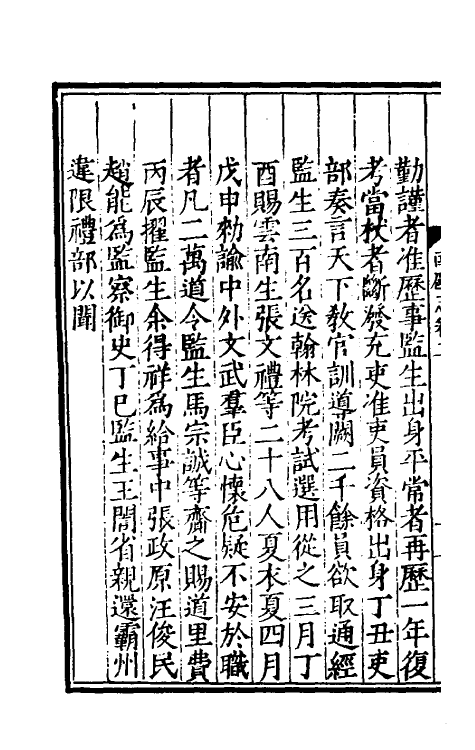 勤謹者准歷事監生出身平常者再歷一年復
考當杖者斷發充吏准吏員資格出身丁丑吏
部奏言天下教官訓導闕二千餘員欲取通經
監生三百名送翰林院考試選用從之三月丁
酉賜雲南生張文禮等二十八人夏衣夏四月
戊申勑諭中外文武羣臣心懷危疑不安於職
者凡二萬道令監生馬宗誠等齎之賜道里費
丙辰擢監生余得祥為給事中張政原汪俊民
趙能為監察御史丁巳監生王誾省親還霸州
違限禮部以聞